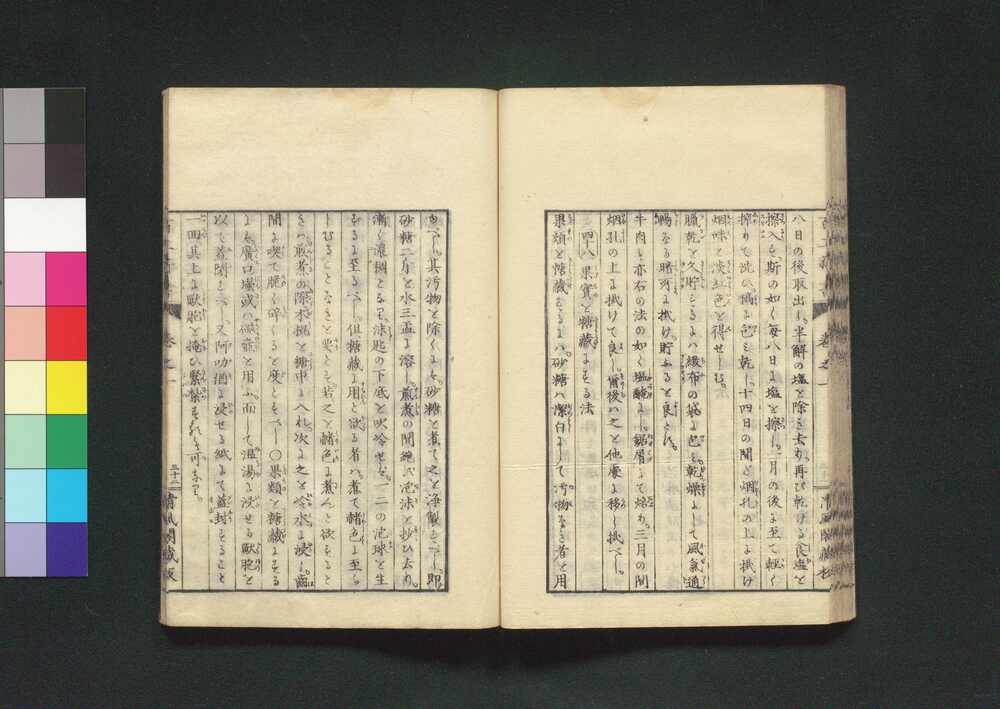 八日の後取出し。半解の塩を除き去り。再び乾ける食塩を
擦入し。斯の如く毎八日に塩を擦し。一月の後に至て軽く
擦りて洗ひ。に包み乾し。十四日の間に烟孔の上に掛け
烟味と淡紅色を得せしむ。
臘乾を久貯するには緻布の袋に包み。乾燥にして風氣通
暢なる場所に掛け。貯ふるを良とす。
牛肉も亦右の法の如く塩醃し。鋸屑にて烙り。三月の間
烟孔の上に掛けて良し。爾後は之を他處に移し掛べし。
四十八 果實を糖藏にする法
果類を糖藏にするには。砂糖は潔白にして汚物なき者を用
ゆべし。其汚物を除くには。砂糖を煮て之を浄製すべし。即
砂糖二斤を水三盃に溶し。煎煮の間絶へず泡沫を抄ひ去り。
漸く濃稠となり。沫匙の下底を吹冷せば。一二の泡球を生
ずるに至るべし。但糖藏に用んと欲る者は。煮て赭色に至ら
しむることなきを要とす。若之を赭色に煮んと欲るとき
は。煎煮の際木を糖中に入れ。次に之を冷水に浸し。齒
間に喫て脆く碎くるを度とすべし。○果類を糖藏にする
には。廣口壜或は磁壺を用ふ。而して温湯に浸せる獸胞を
以て蓋閉すべし。又阿叻酒に浸せる紙にて蓋封すること
一回。其上に獸胞を掩ひ。緊紮するも可なり。
三十二
卷之一
清風閣藏板